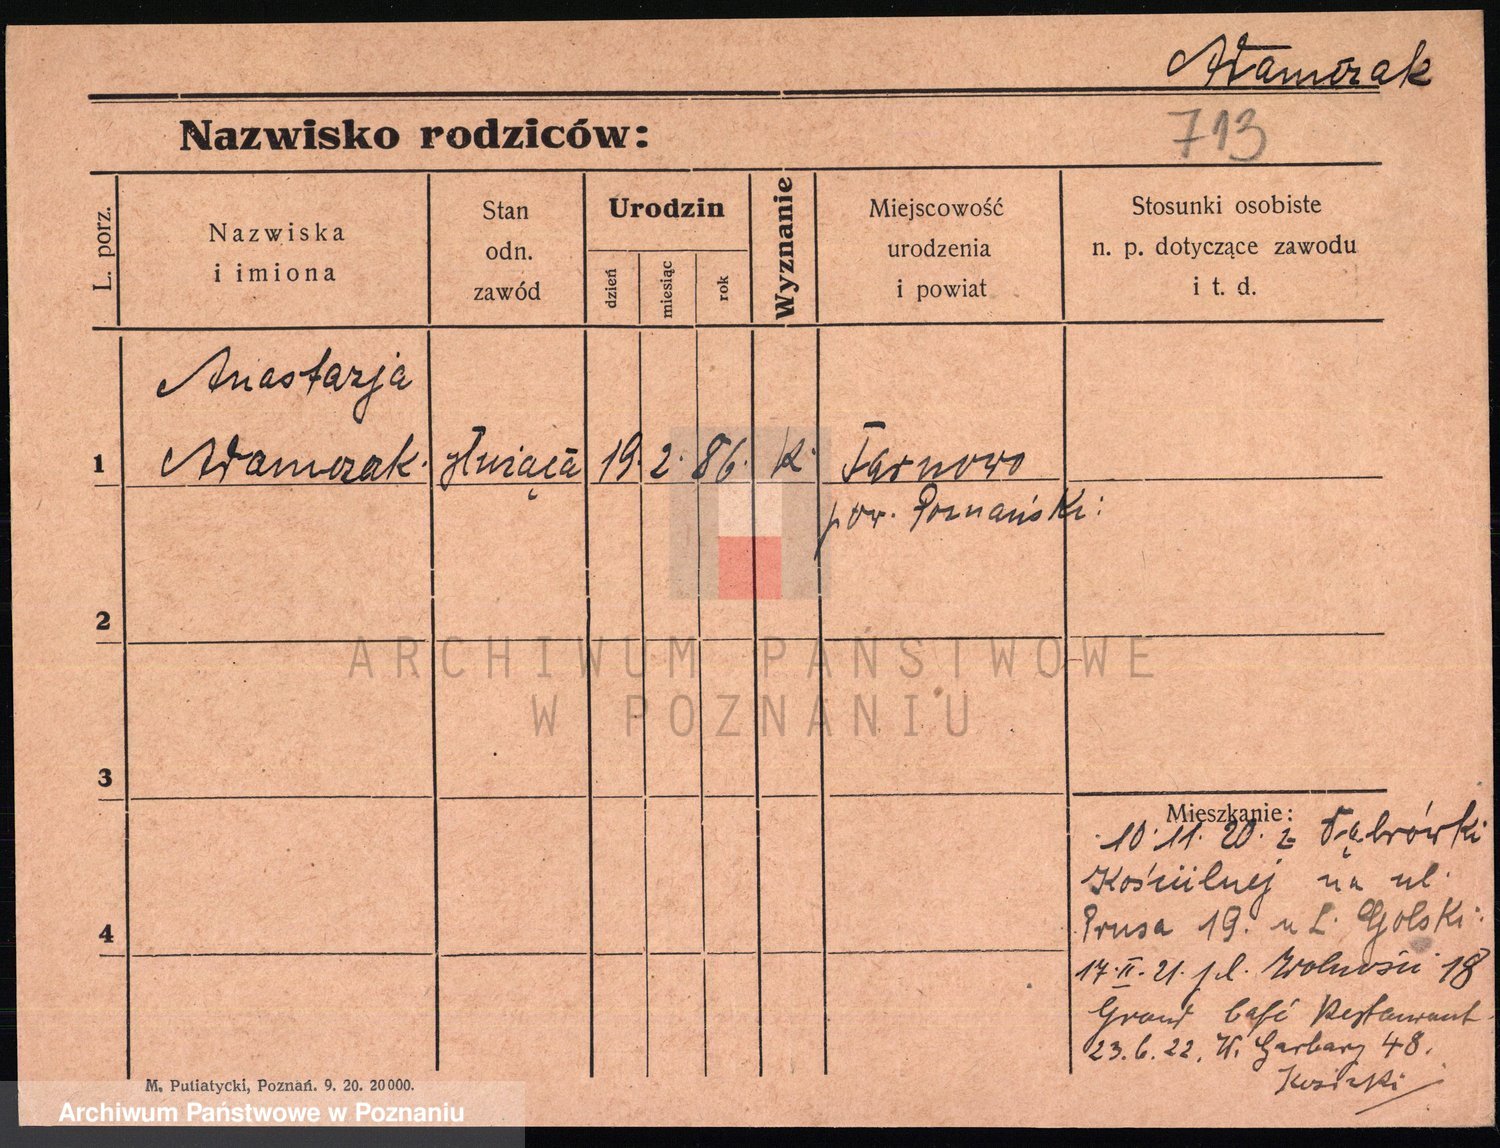 Adamczak
Nazwisko rodziców:
713
L. porz.
Nazwiska
i imiona
Stan
odn.
zawód
Urodzin
dzień
miesiąc
rok
Wyznanie
Miejscowość
urodzenia
i powiat
Stosunki osobiste
n. p. dotyczące zawodu
i t. d.
Anastazja
1 Adamczak. służąca 19. 2. 86. K. Tarnowo
pow. Poznański:
2
ARCHIWUM PAŃSTWOWE
W POZNANIU
3
Mieszkanie:
10. 11. 20. z Dąbrówki
Kościelnej na ul.
4
Prusa 19. u L. Golski:
17. II. 21. pl. Wolności 18
Grand Café Restaurant
23. 6. 22. W. Garbary 48.
M. Putiatycki, Poznań. 9. 20. 20000.
Archiwum Państwowe w Poznaniu